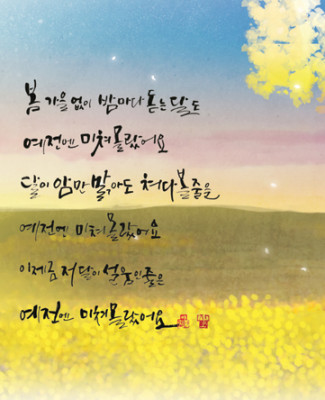 봄 가을 없이 밤마다 돋는 달도
예전엔 미처 몰랐어요
달이 암만 밝아도 쳐다볼줄을
예전엔 미처 몰랐어요
이제금 저 달이 설움인줄은
예전엔 미처 몰랐어요